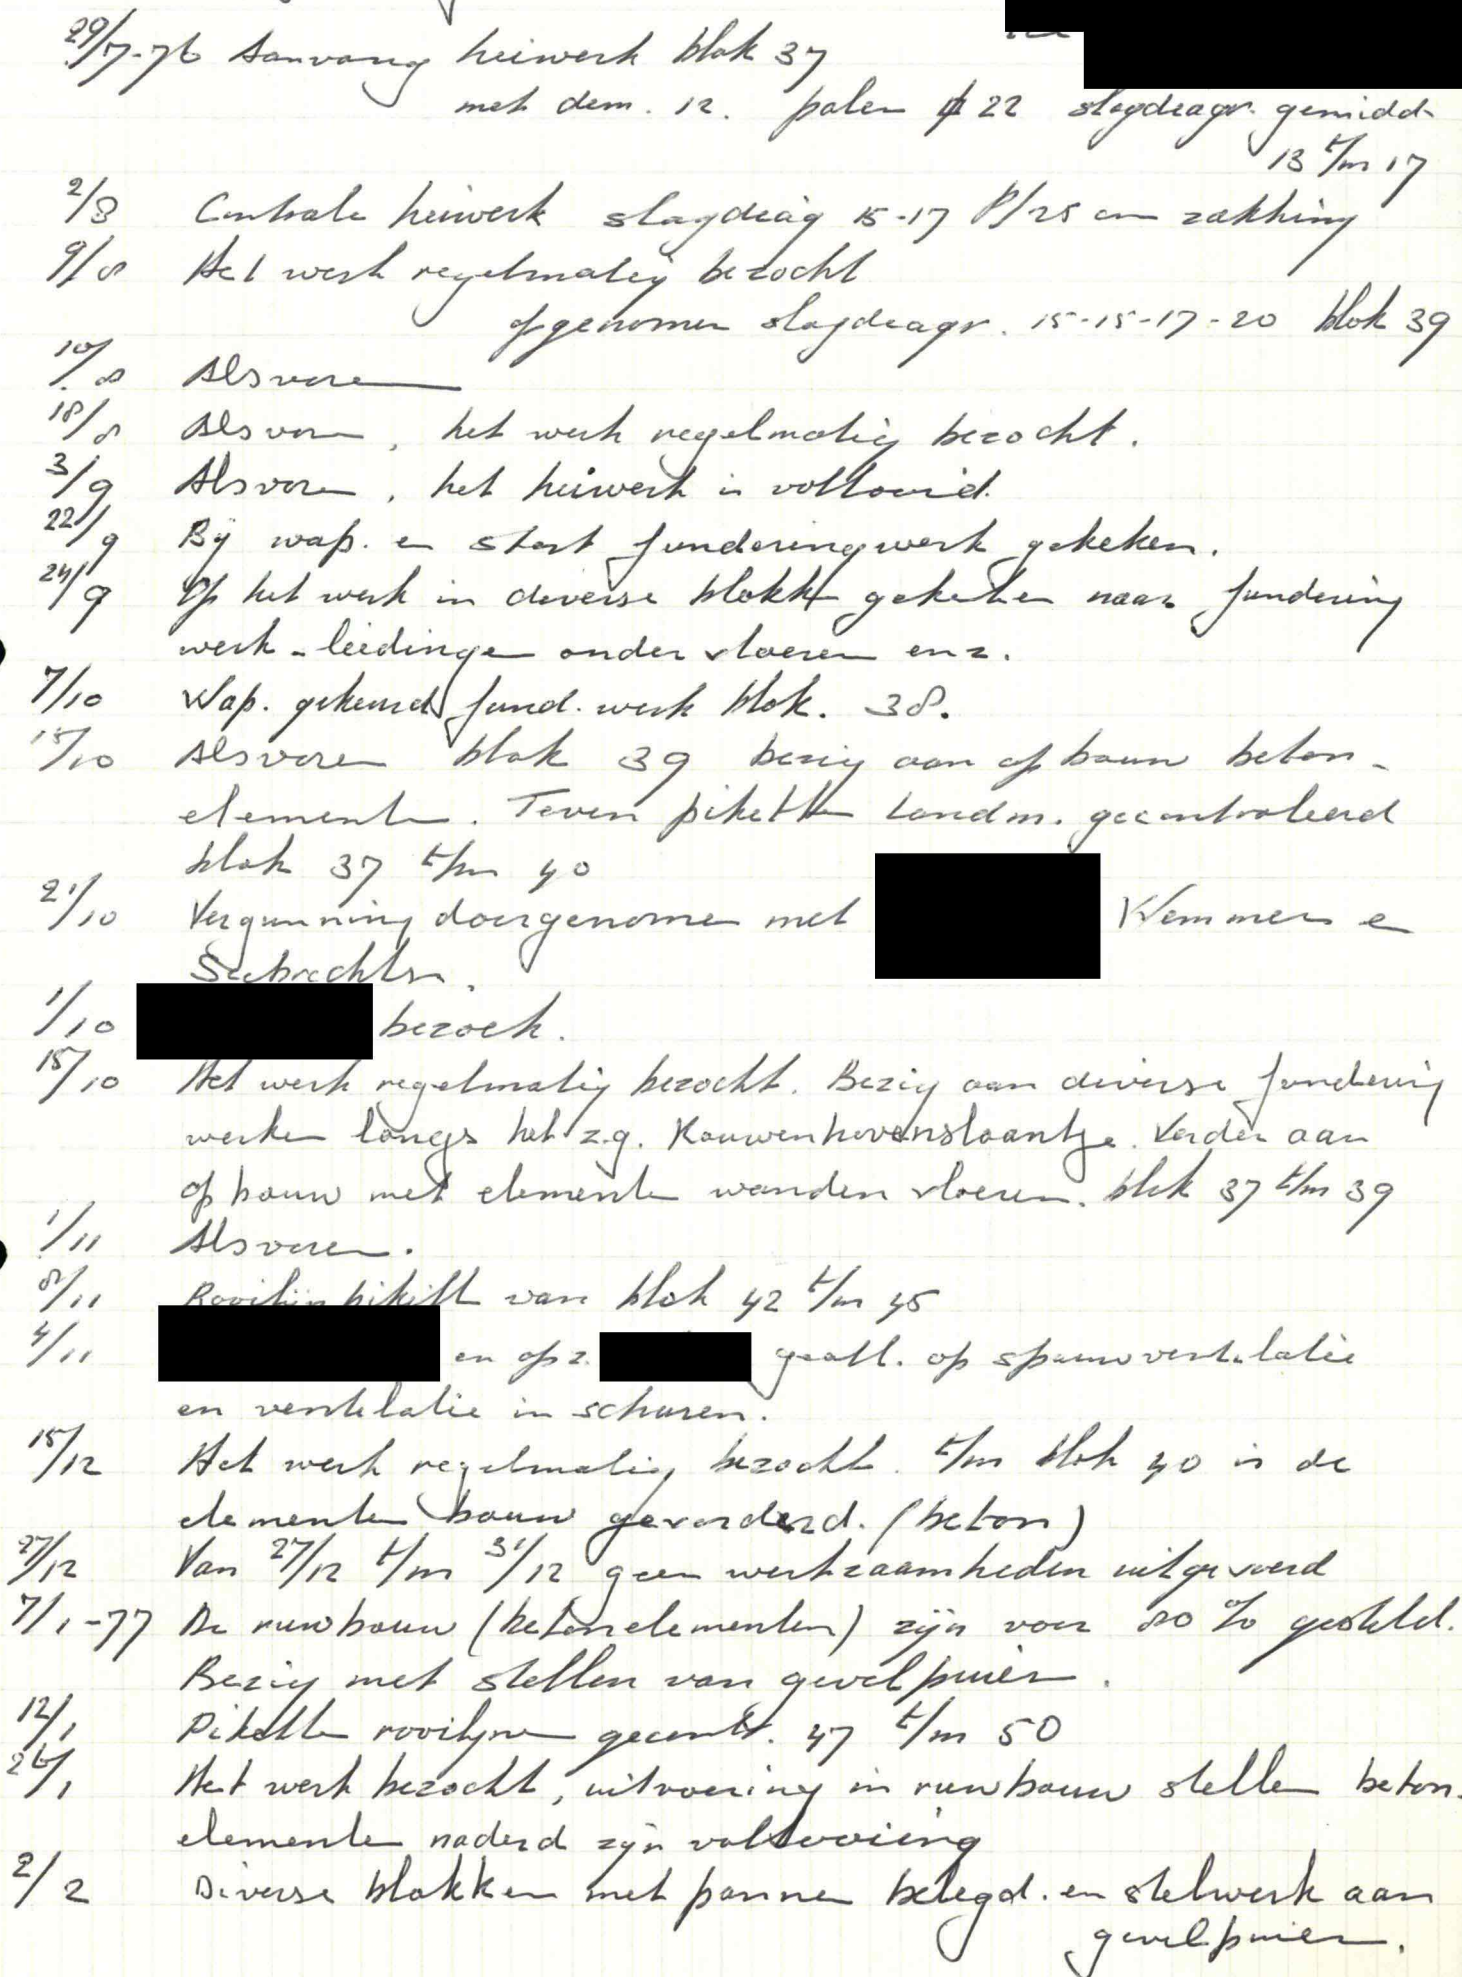 29/7-76 Aanvang heiwerk blok 37
met dem. 12. palen ⌀ 22 slagdiagr. gemidd.
13 t/m 17
2/8 Controle heiwerk slagdiag 15-17 p/25 cm zakking
9/8 Het werk regelmatig bezocht
opgenomen slagdiagr. 15-15-17-20 blok 39
10/8 Alsvoren
18/8 Alsvoren, het werk regelmatig bezocht.
3/9 Alsvoren, het heiwerk is voltooid.
22/9 Bij wap. en start funderingwerk gekeken.
24/9 Op het werk in diverse blokken gekeken naar fundering
werk - leidingen onder vloeren enz.
7/10 Wap. gekeurd fund. werk blok. 38.
15/10 Alsvoren blok 39 bezig aan opbouw beton-
elementen. Teven piketten Landm. gecontroleerd
blok 37 t/m 40
21/10 Vergunning doorgenomen met Wemmers en
1/10 bezoek.
15/10 Het werk regelmatig bezocht. Bezig aan diverse fundering
werken langs het z.g. Kouwenhovenslaantje. Verder aan
opbouw met elementen wanden vloeren. blok 37 t/m 39
1/11 Alsvoren.
8/11 Rooilijn pikett van blok 42 t/m 45
4/11 en opz. geatt. op spouwventilatie
en ventilatie in schuren.
15/12 Het werk regelmatig bezocht. t/m blok 40 is de
elementen bouw gevorderd. (beton)
27/12 Van 27/12 t/m 31/12 geen werkzaamheden uitgevoerd
7/1-77 De ruwbouw (betonelementen) zijn voor 80 % gesteld.
Bezig met stellen van gevelpuien.
12/1 Piketten rooilijnen gecontr. 47 t/m 50
26/1 Het werk bezocht, uitvoering in ruwbouw stellen beton.
elementen naderd zijn voltooiing
2/2 Diverse blokken met pannen belegd. en stelwerk aan
gevelpuien.